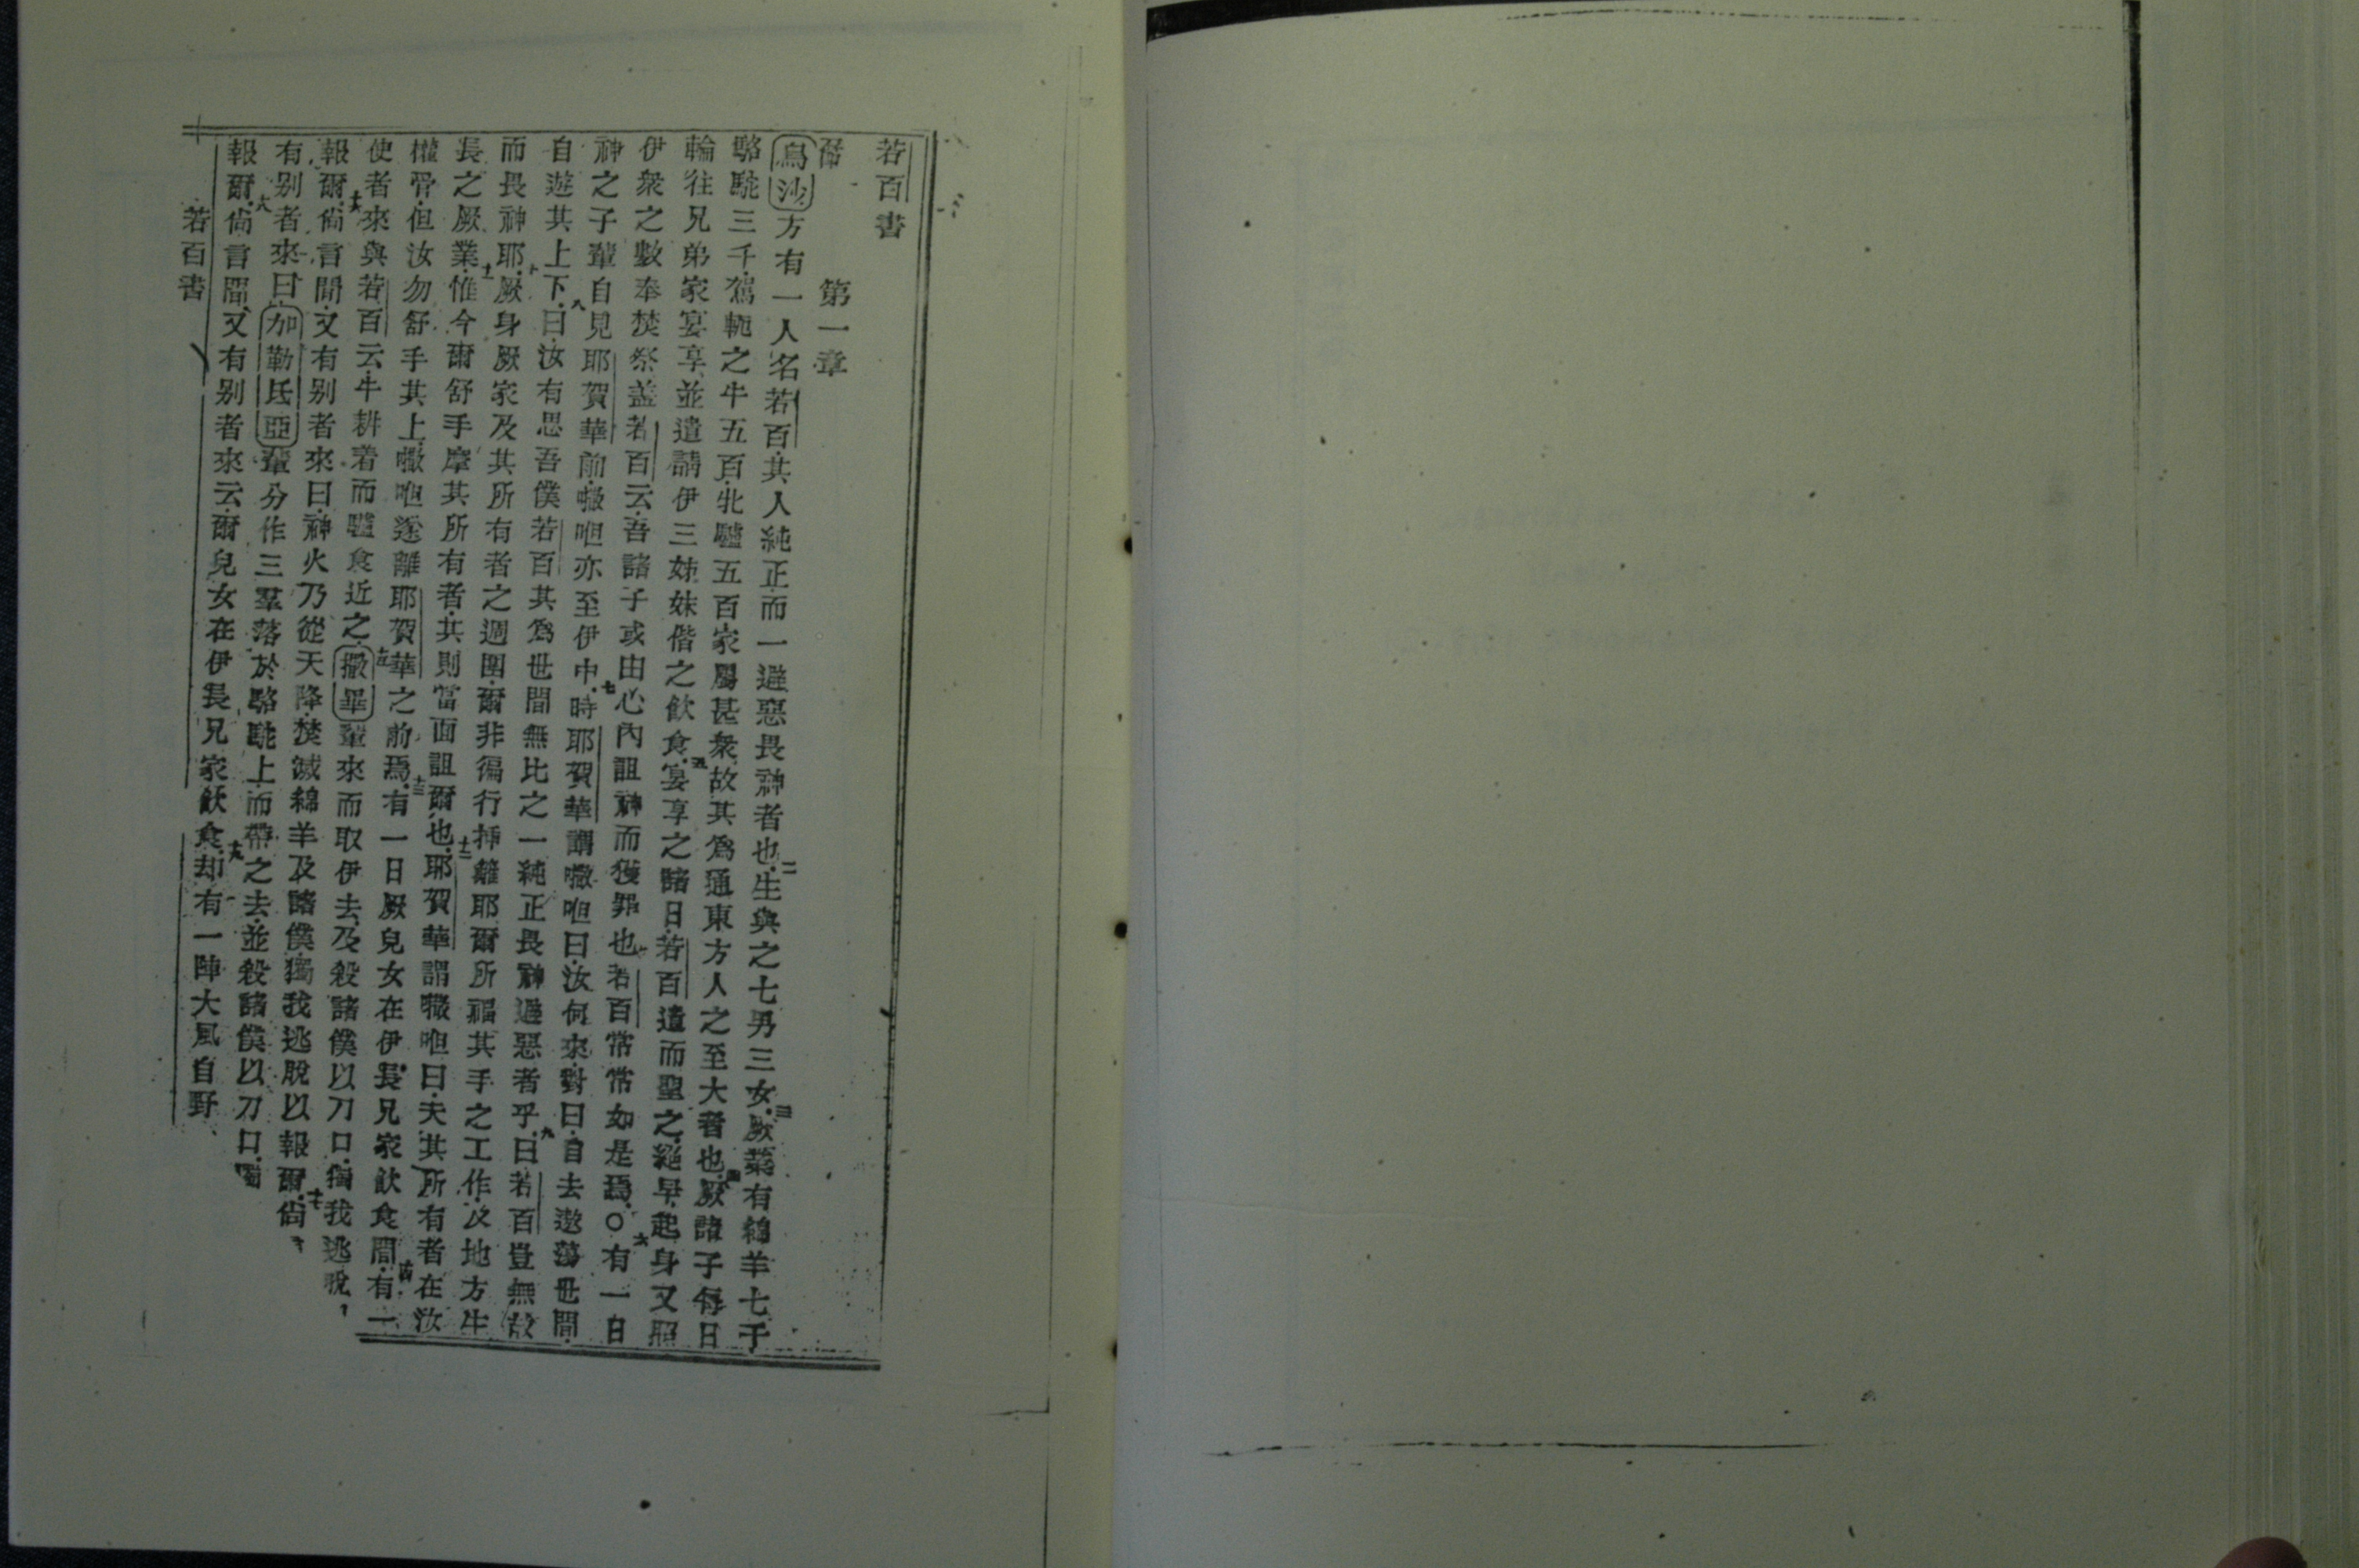 若百書
第一章
烏沙方有一人名若百其人純正而一遅惡畏神者也二生與之七男三女三厥業有綿羊七千
駱駝三千駕軛之牛五百牝驢五百家屬甚衆故其爲通東方人之至大者也四厥諸子每日
輪往兄弟家宴享並遣請伊三姊妹偕之飲食五宴享之諸日若百遣而聖之絕早起身又照
伊衆之數奉焚祭蓋若百云吾諸子或由心內詛神而獲罪也若百常常如是焉○六有一日
神之子輩自見耶賀華前㘔呾亦至伊中七時耶賀華謂㘔呾曰汝何來對曰自去遨蕩世間
自遊其上下八曰汝有思吾僕若百其爲世間無比之一純正畏神遅惡者乎九曰若百豈無故
而畏神耶十厥身厥家及其所有者之週圍爾非徧行插籬耶爾所福其手之工作及地方生
長之厥業十一惟今爾舒手摩其所有者其則當面詛爾也十二耶賀華謂㘔呾曰夫其所有者在汝
權骨但汝勿舒手其上㘔呾遂離耶賀華之前焉十三有一日厥兒女在伊長兄家飲食間十四有一
使者來與若百云牛耕着而驢食近之十五撒畢輩來而取伊去及殺諸僕以刀口獨我逃脫
報爾十六尙言間又有別者來曰神火乃從天降焚滅綿羊及諸僕獨我逃脫以報爾十七尙
有別者來曰加勒氐亞輩分作三羣落於駱駝上而帶之去並殺諸僕以刀口獨
報爾尙言間又有別者來云爾兒女在伊長兄家飲食十九却有一陣大風自野
若百書